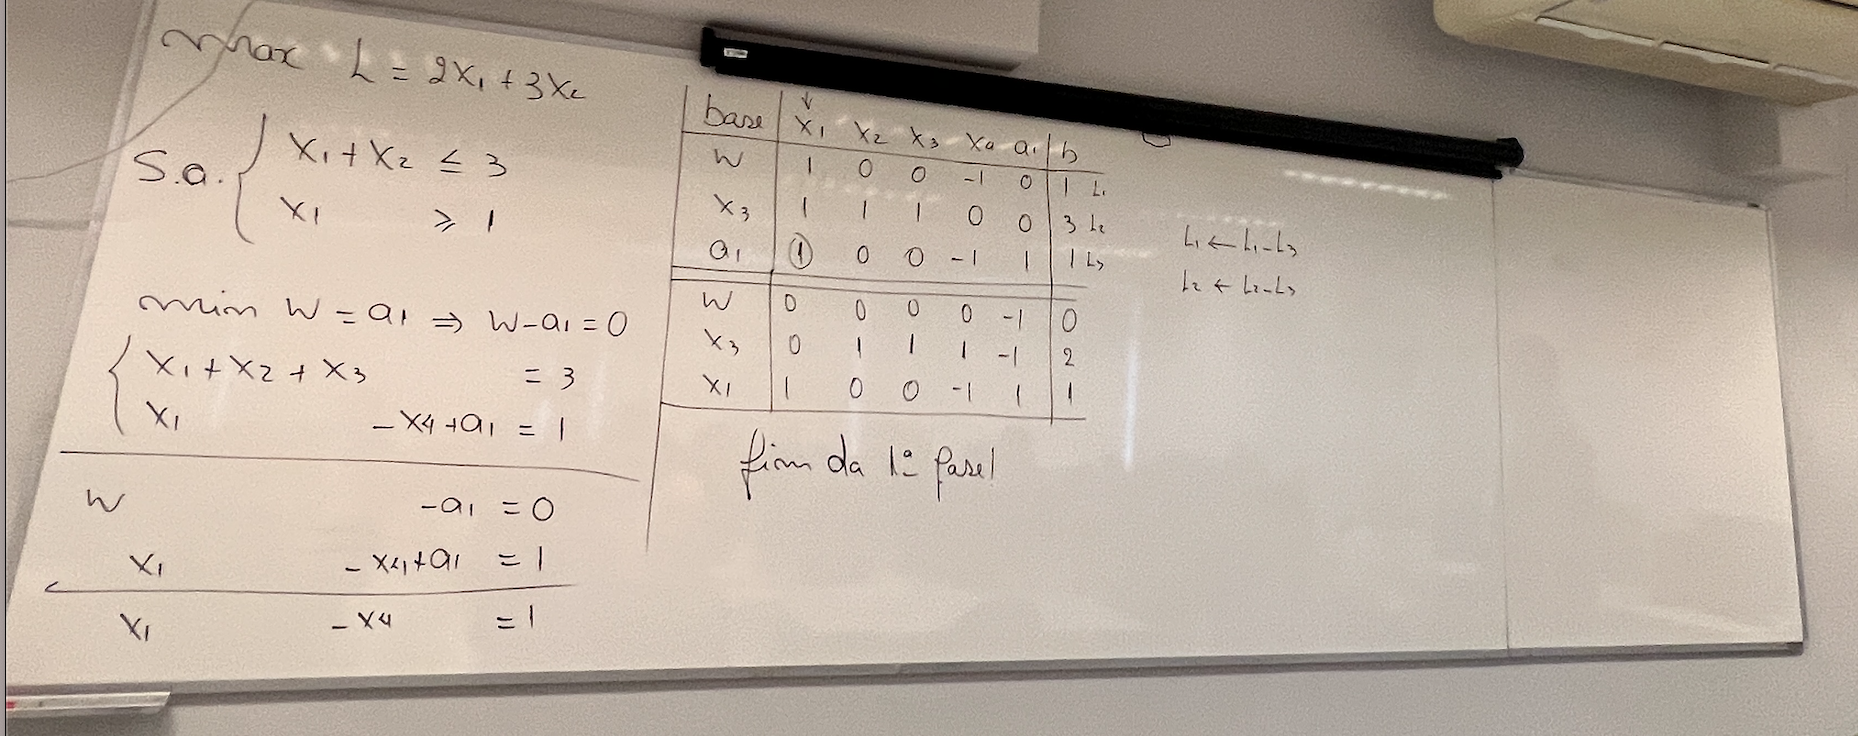 max L = 2x₁ + 3x₂
S.a. { x₁ + x₂ ≤ 3
x₁ ≥ 1
min W = a₁ ⇒ W - a₁ = 0
{ x₁ + x₂ + x₃ = 3
x₁ - x₄ + a₁ = 1
W - a₁ = 0
x₁ - x₄ + a₁ = 1
x₁ - x₄ = 1
↓
base | x₁ x₂ x₃ x₄ a₁ | b
W | 1 0 0 -1 0 | 1 L₁
x₃ | 1 1 1 0 0 | 3 L₂
a₁ | ① 0 0 -1 1 | 1 L₃
W | 0 0 0 0 -1 | 0
x₃ | 0 1 1 1 -1 | 2
x₁ | 1 0 0 -1 1 | 1
fim da 1ª fase!
L₁ ← L₁ - L₃
L₂ ← L₂ - L₃